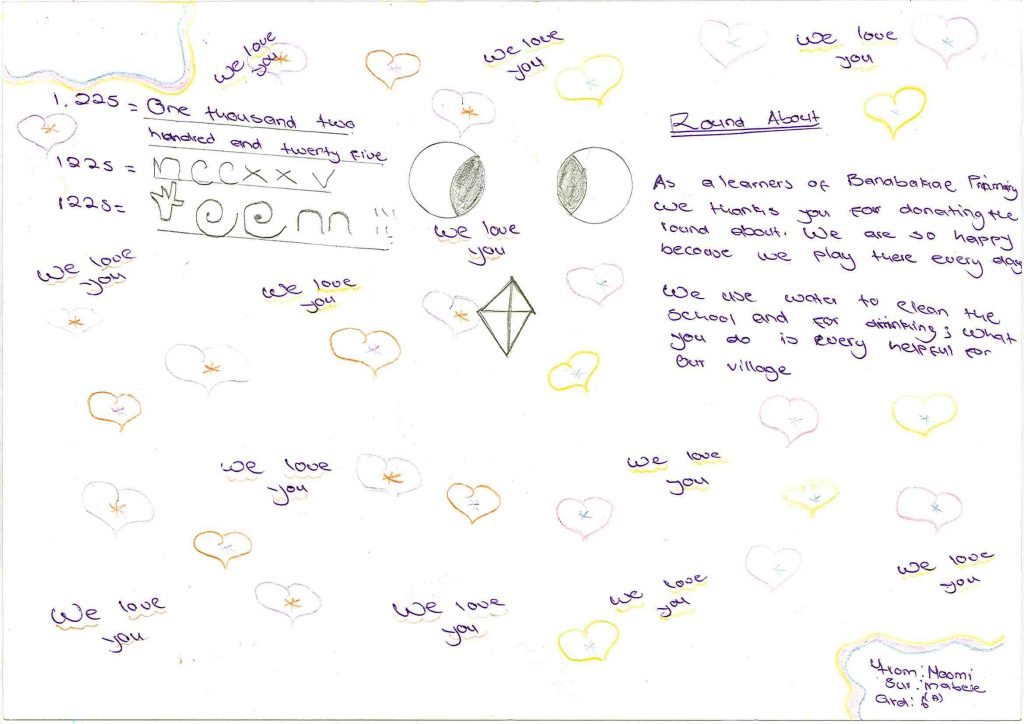 We love
you
We love
you
We love
you
1.225 = One thousand two
hundred and twenty five
1225 = MCCXXV
1225=
We love
you
Round About
As a learners of Banabakae Primary
we thanks you for donating the
round about. We are so happy
because we play there every day
We use water to clean the
school and for drinking; what
you do is every helpful for
Our village
We love
you
We love
you
We love
you
We love
you
We love
you
We love
you
We love
you
We love
you
From: Naomi
Sur: mabese
Grd: 6 (A)